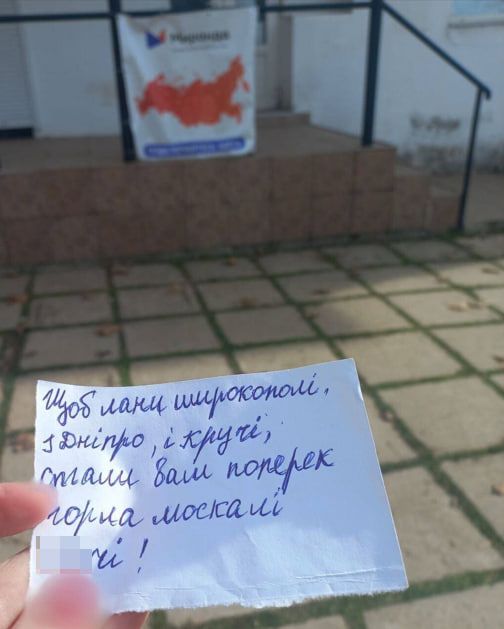 Щоб лани широкополі,
і Дніпро, і кручі,
стали вам поперек
горла москалі
чі!